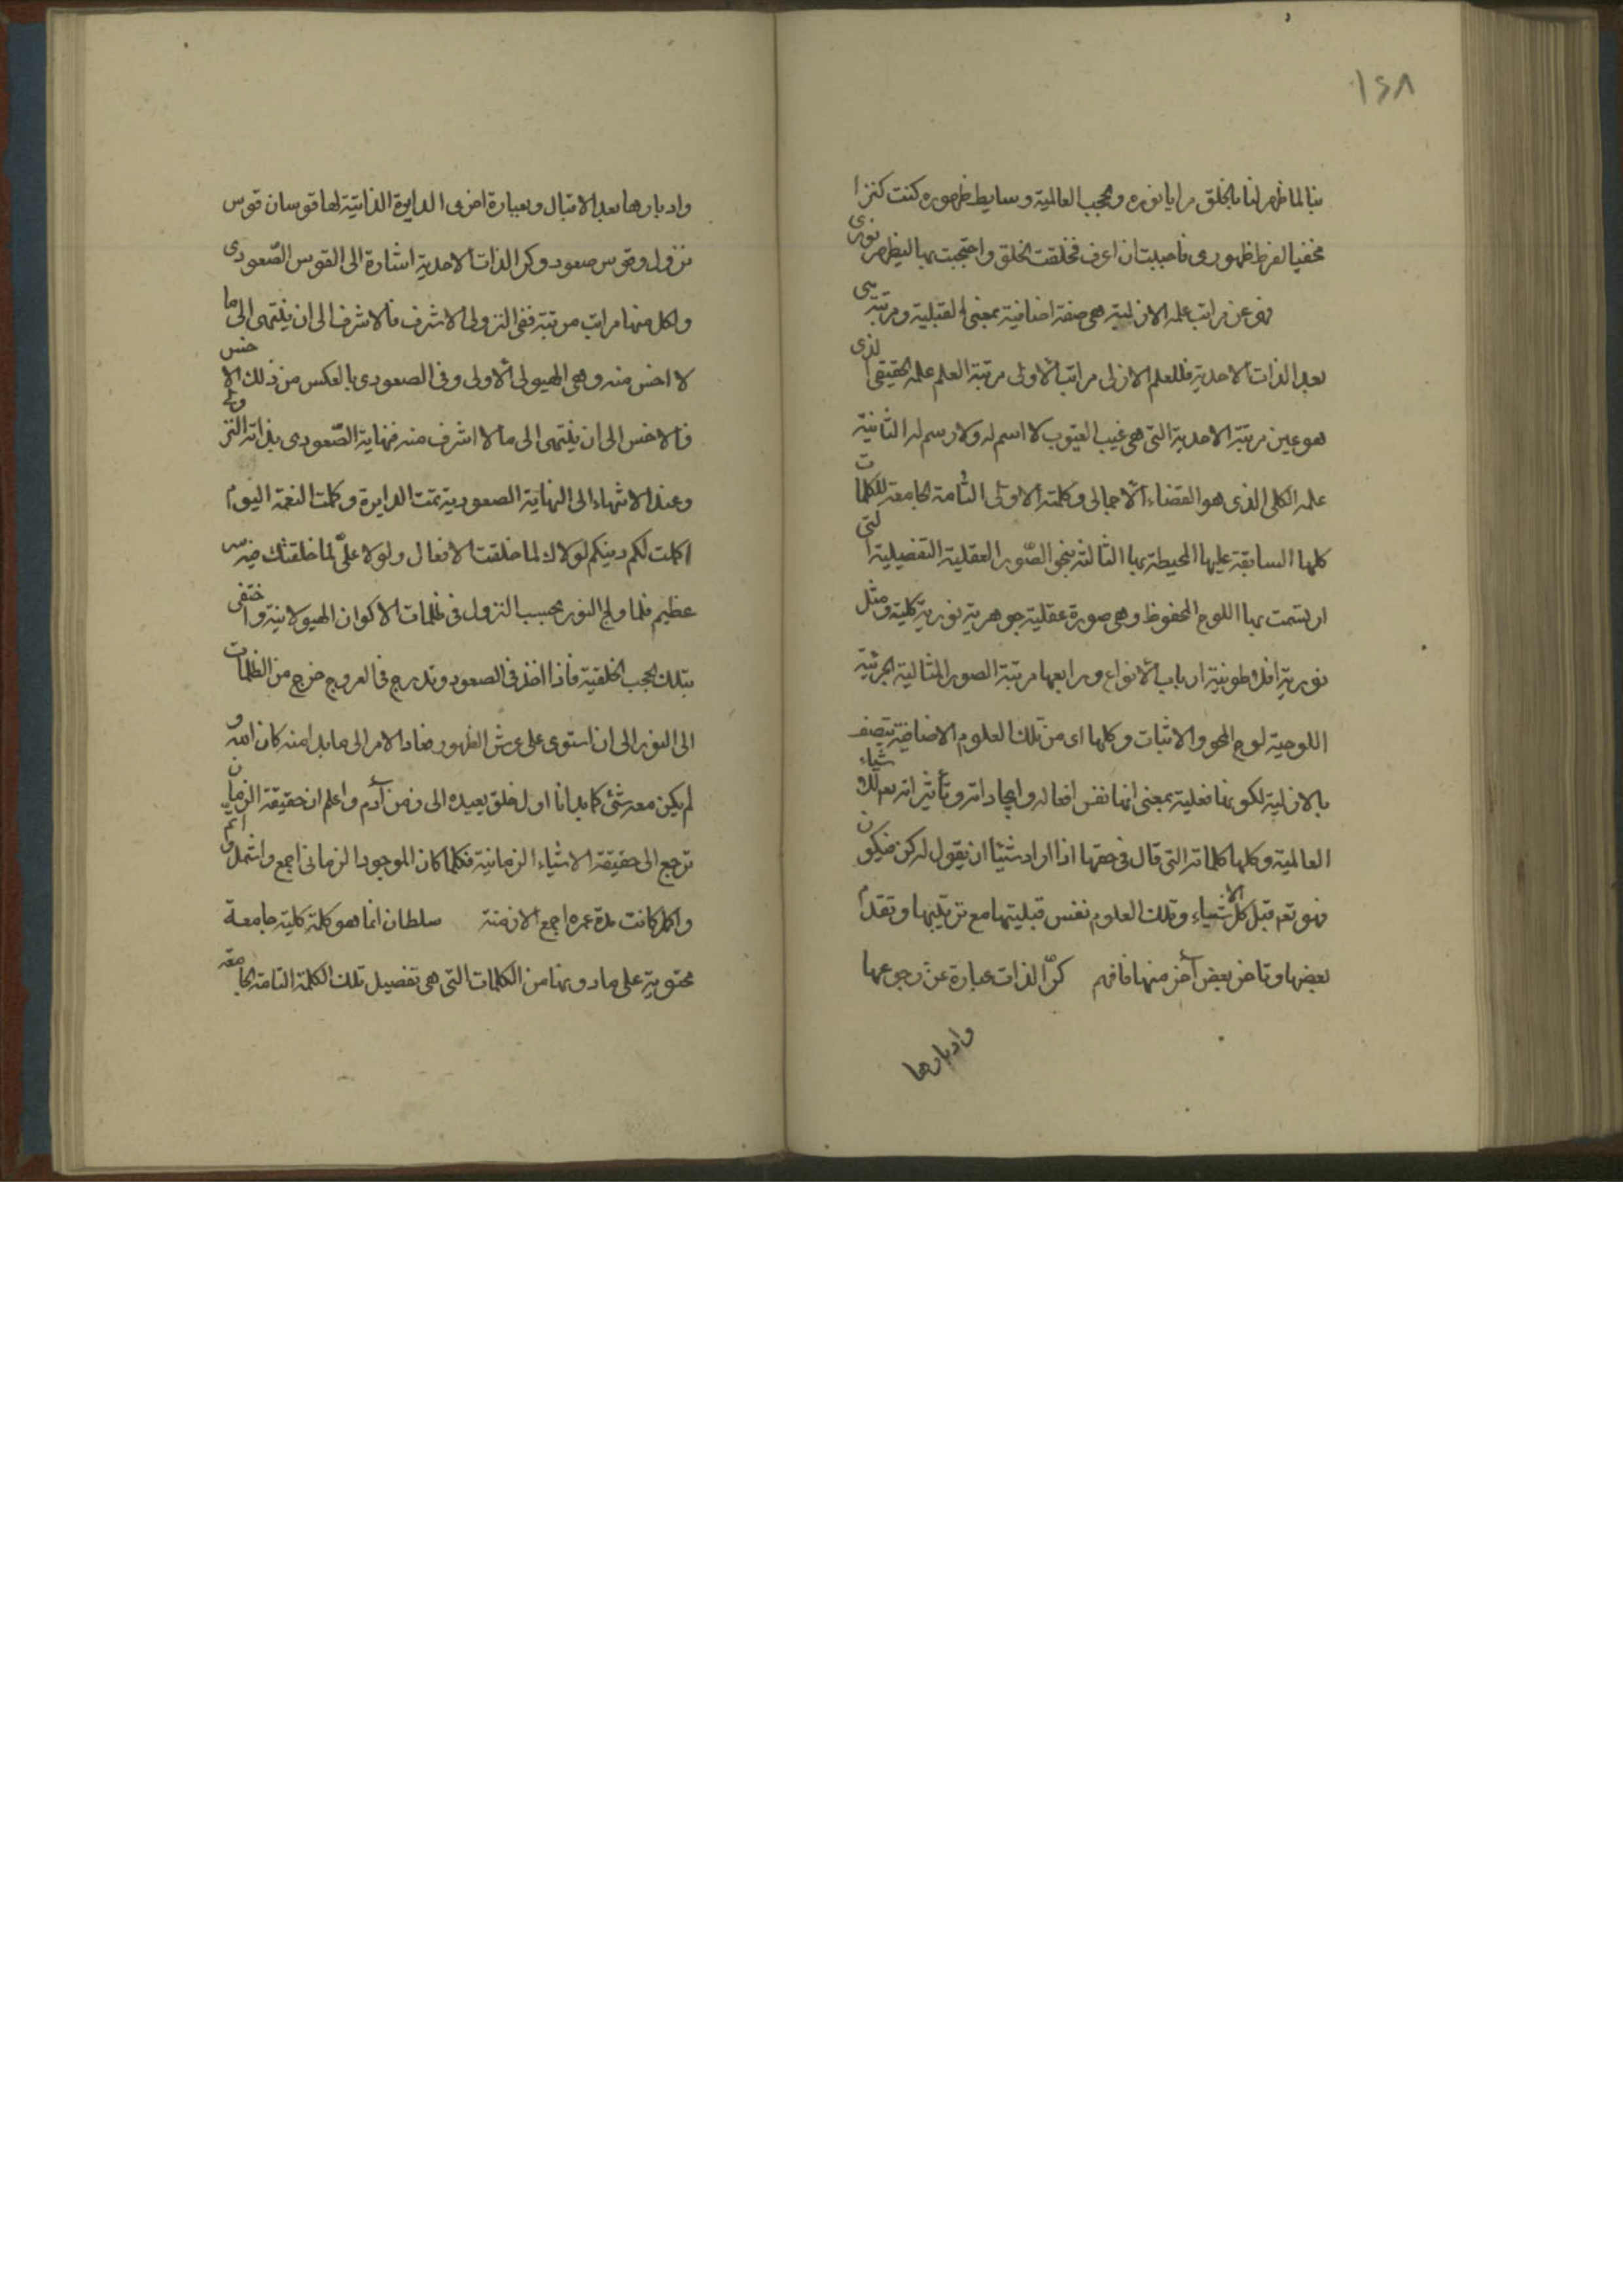 ١٤٨
بنا لما ظهر لنا بالخلق مرايا نوره وحجب العالمية وسايط ظهوره كنت كنزا
مخفيا لفرط ظهوری فاحببت ان اعرف فخلقت الخلق واحتجبت بها ليظهر نوری
عن مراتب علمه الازلية هی صفة اضافية بمعنی القبلية ومرتبته هی
بعد الذات الاحدية فللعلم الازلی مراتب الأولی مرتبة العلم علمه الحقيقی الذی
هو عين مرتبة الاحدية التی هی غيب الغيوب لا اسم له ولا رسم له الثانية
علمه الكلی الذی هو القضاء الاجمالی وكلمته الاولی التامة الجامعة للكلمات
كلها السابقة عليها المحيطة بها الثالثة نحو الصّور العقلية التفصيلية التی
ارتسمت بها اللوح المحفوظ وهی صورة عقلية جوهرية نورية كلية ومثل
نورية افلاطونية ارباب الأنواع ورابعها مرتبة الصور المثالية الجزئية
اللوحية لوح المحو والاثبات وكلها ای من تلك العلوم الاضافية يتصف
بالازلية لكونها فعلية بمعنی انها نفس افعاله وايجاداته وتأثيراته بعد تلك شياء
العالمية وكلها كلماته التی قال فی حقها اذا اراد شيئا ان يقول له كن فيكون
فهو تع قبل كل الاشياء وتلك العلوم نفس قبليتها مع ترتيبها وتقدم
بعضها وتاخر بعض آخر منها فافهم كرّ الذات عبارة عن رجوعها
وادبارها
وادبارها بعد الاقبال وبعبارة اخری الدايرة الذاتية لها قوسان قوس
نزول وقوس صعود وكر الذات الاحدية اشارة الی القوس الصّعودی
ولكل منها مراتب مرتبة ففی النزولی الاشرف فالاشرف الی ان ينتهی الی ما
لا اخس منه وهی الهيولی الأولی وفی الصعودی بالعكس من ذلك الاخس
فالاخس الی ان ينتهی الی ما لا اشرف منه فنهاية الصّعودی بداية النزولی
وعند الانتهاء الی النهاية الصعودية تمت الدايرة وكملت النعمة اليوم
اكملت لكم دينكم لولاك لما خلقت الافعال ولولا علیّ لما خلقتك فيه سر
عظيم فلما ولج النور بحسب النزول فی ظلمات الاكوان الهيولانية واختفی
بتلك الحجب الخلقية فاذا اخذ فی الصعود وتدرج فی العروج خرج من الظلمات
الی النور الی ان استوی علی عرش الظهور فعاد الامر الی ما بدا منه كان الله و
لم يكن معه شئ كما بدانا اول خلق يعيده الی ومن آدم واعلم ان حقيقة الزمان
ترجع الی حقيقة الاشياء الزمانية فكلما كان الموجود الزمانی اجمع واشمل واتم
واكمل كانت مدة عمره اجمع الازمنة سلطان انما هو كلمة كلية جامعة
محتوية علی ما دونها من الكلمات التی هی تفصيل تلك الكلمة التامة الجامعة